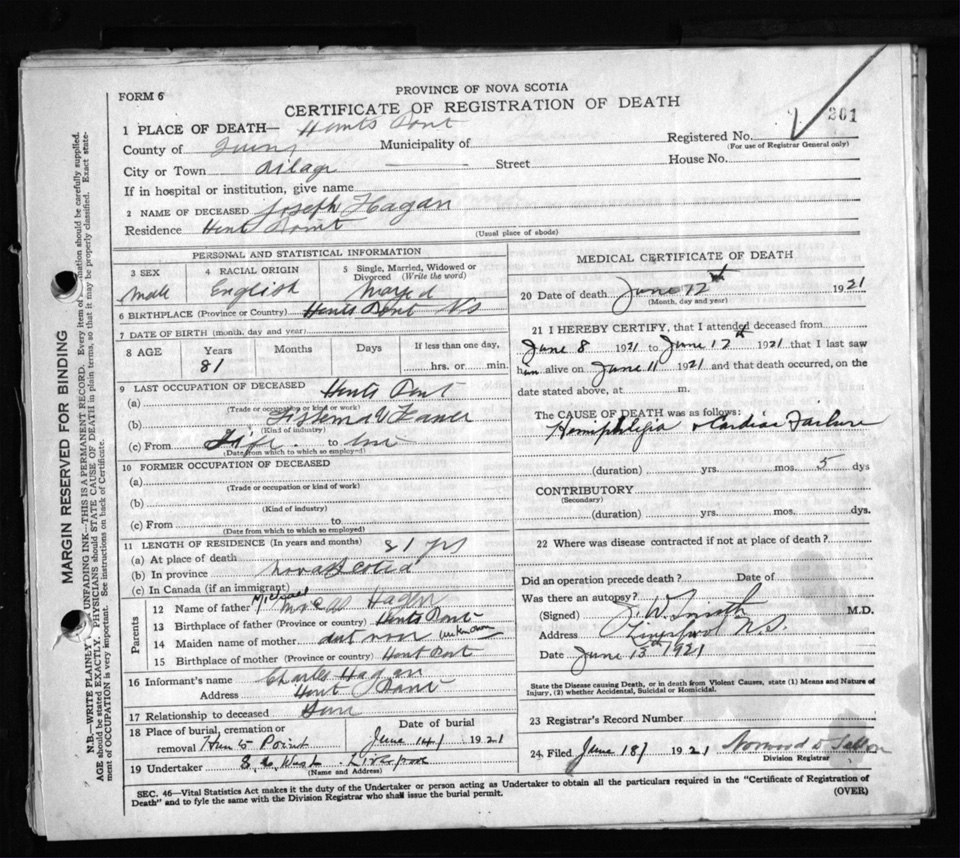 PROVINCE OF NOVA SCOTIA
FORM 6
CERTIFICATE OF REGISTRATION OF DEATH
201
1 PLACE OF DEATH— Hunts Pont
Registered No.
(For use of Registrar General only)
County of Queens Municipality of
City or Town Street House No.
If in hospital or institution, give name
2 NAME OF DECEASED Joseph Hagan
Residence Hunts Point
(Usual place of abode)
PERSONAL AND STATISTICAL INFORMATION
3 SEX 4 RACIAL ORIGIN 5 Single, Married, Widowed or Divorced (Write the word)
Male English Maryed
6 BIRTHPLACE (Province or Country) Hunts Pont NS
7 DATE OF BIRTH (month, day and year)
8 AGE Years Months Days If less than one day,
81 hrs. or min.
9 LAST OCCUPATION OF DECEASED Hunts Pont
(a)
(Trade or occupation or kind of work)
(b)
(Kind of industry)
(c) From Life to
(Date from which to which so employed)
10 FORMER OCCUPATION OF DECEASED
(a)
(Trade or occupation or kind of work)
(b)
(Kind of industry)
(c) From to
(Date from which to which so employed)
11 LENGTH OF RESIDENCE (In years and months) 81 yrs
(a) At place of death
(b) In province Nova Scotia
(c) In Canada (if an immigrant)
Parents
12 Name of father Michael Hagen
13 Birthplace of father (Province or country) Hunts Pont
14 Maiden name of mother dont now (unknown)
15 Birthplace of mother (Province or country) Hunt Pont
16 Informant's name Charles Hagan
Address Hunt Pont
17 Relationship to deceased Sun
18 Place of burial, cremation or removal Hunts Point
Date of burial June 14/ 1921
19 Undertaker West Liverpool
(Name and Address)
MEDICAL CERTIFICATE OF DEATH
20 Date of death June 12th 1921
(Month, day and year)
21 I HEREBY CERTIFY, that I attended deceased from
June 8 1921 to June 12th 1921 that I last saw
him alive on June 11 1921 and that death occurred, on the
date stated above, at m.
The CAUSE OF DEATH was as follows:
Hemiphlegia & Cardiac Failure
(duration) yrs. mos. 5 dys
CONTRIBUTORY
(Secondary)
(duration) yrs. mos. dys
22 Where was disease contracted if not at place of death?
Did an operation precede death? Date of
Was there an autopsy?
(Signed) J. W. Smith M.D.
Address Liverpool N.S.
Date June 13th 1921
State the Disease causing Death, or in death from Violent Causes, state (1) Means and Nature of
Injury, (2) whether Accidental, Suicidal or Homicidal.
23 Registrar's Record Number
24. Filed June 18/ 1921 Norwood
Division Registrar
SEC. 46—Vital Statistics Act makes it the duty of the Undertaker or person acting as Undertaker to obtain all the particulars required in the "Certificate of Registration of
Death" and to fyle the same with the Division Registrar who shall issue the burial permit.
(OVER)
MARGIN RESERVED FOR BINDING
N.B.—WRITE PLAINLY UNFADING INK—THIS IS A PERMANENT RECORD. Every item of information should be carefully supplied.
AGE should be stated EXACTLY. PHYSICIANS should STATE CAUSE OF DEATH in plain terms, so that it may be properly classified. Exact state-
ment of OCCUPATION is very important. See instructions on back of Certificate.